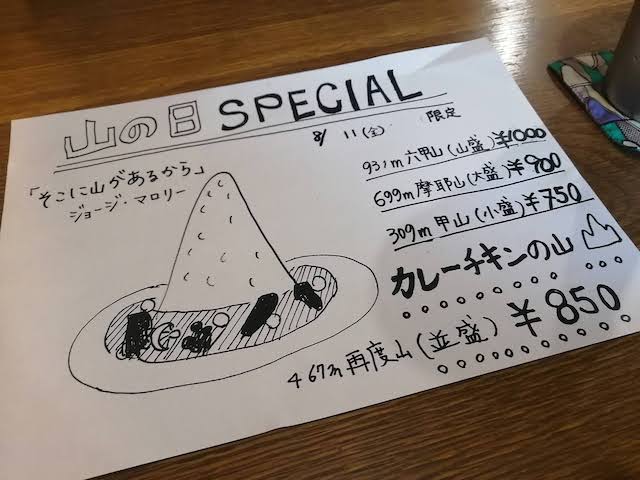 山の日 SPECIAL
8/11(金) 限定
「そこに山があるから」
ジョージ・マロリー
931m 六甲山(山盛)¥1000
699m 摩耶山(大盛)¥900
309m 甲山(小盛)¥750
カレーチキンの山
467m 再度山(並盛)¥850